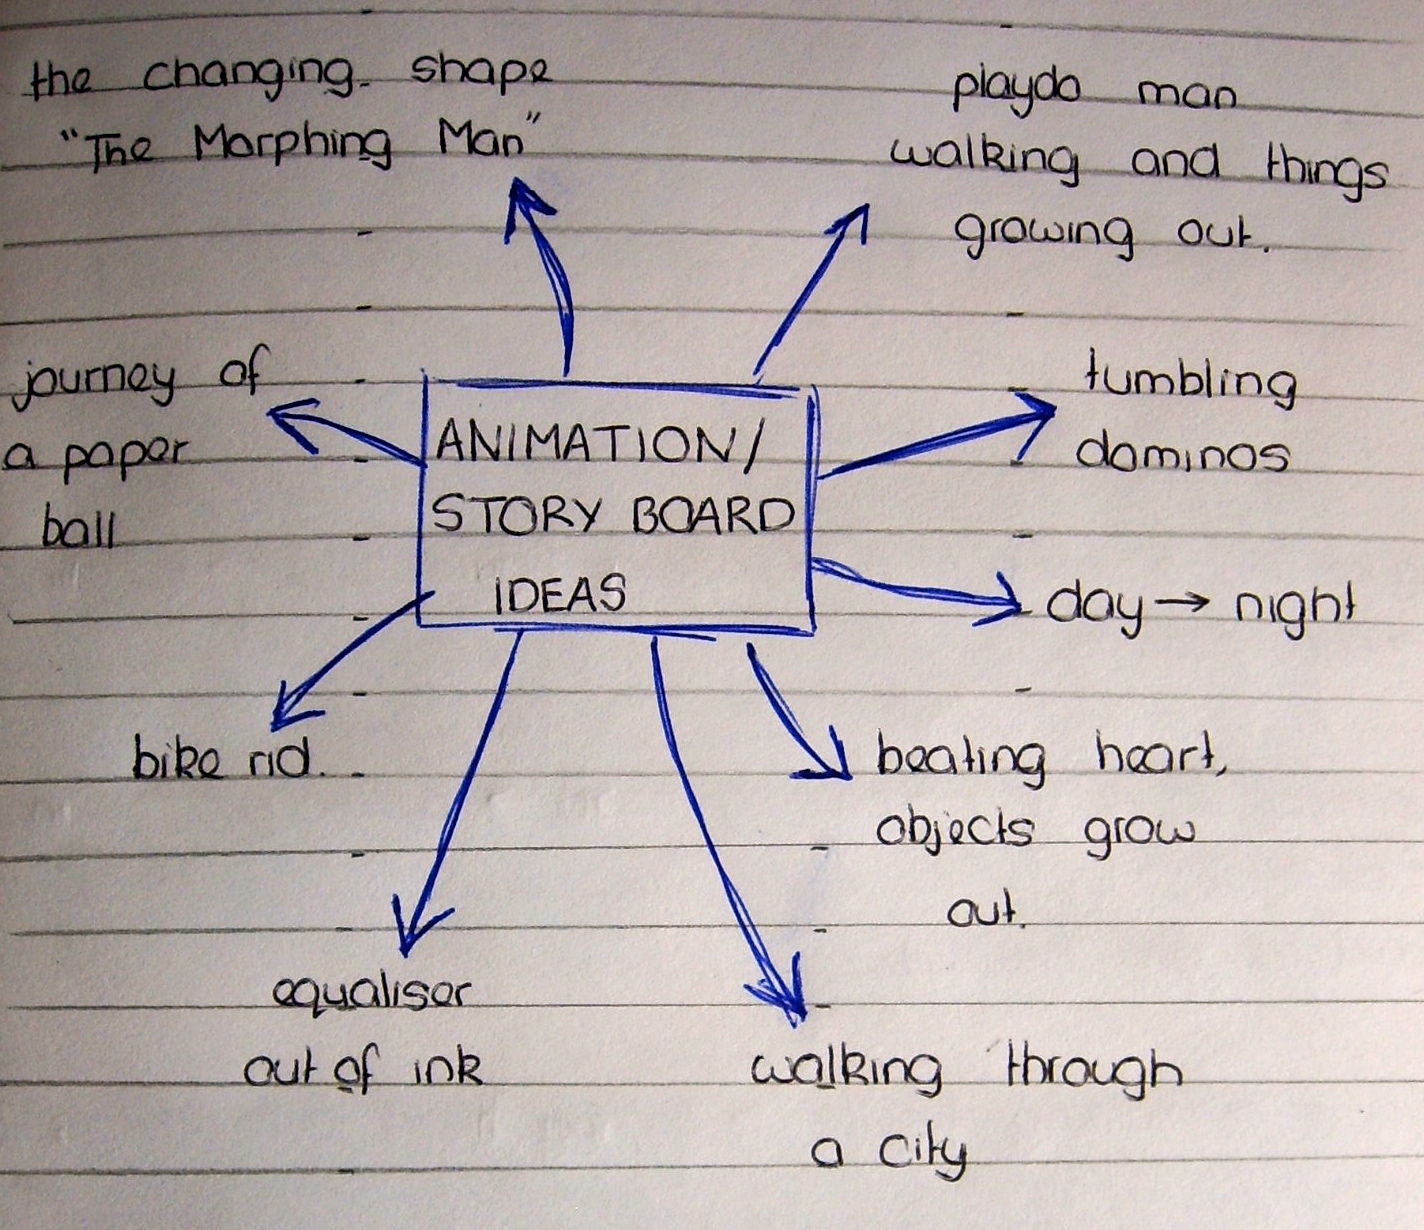 the changing shape
"The Morphing Man"
playdo man
walking and things
growing out.
journey of
a paper
ball
tumbling
dominos
ANIMATION/
STORY BOARD
IDEAS
day → night
bike rid.
beating heart,
objects grow
out.
equaliser
out of ink
walking through
a city